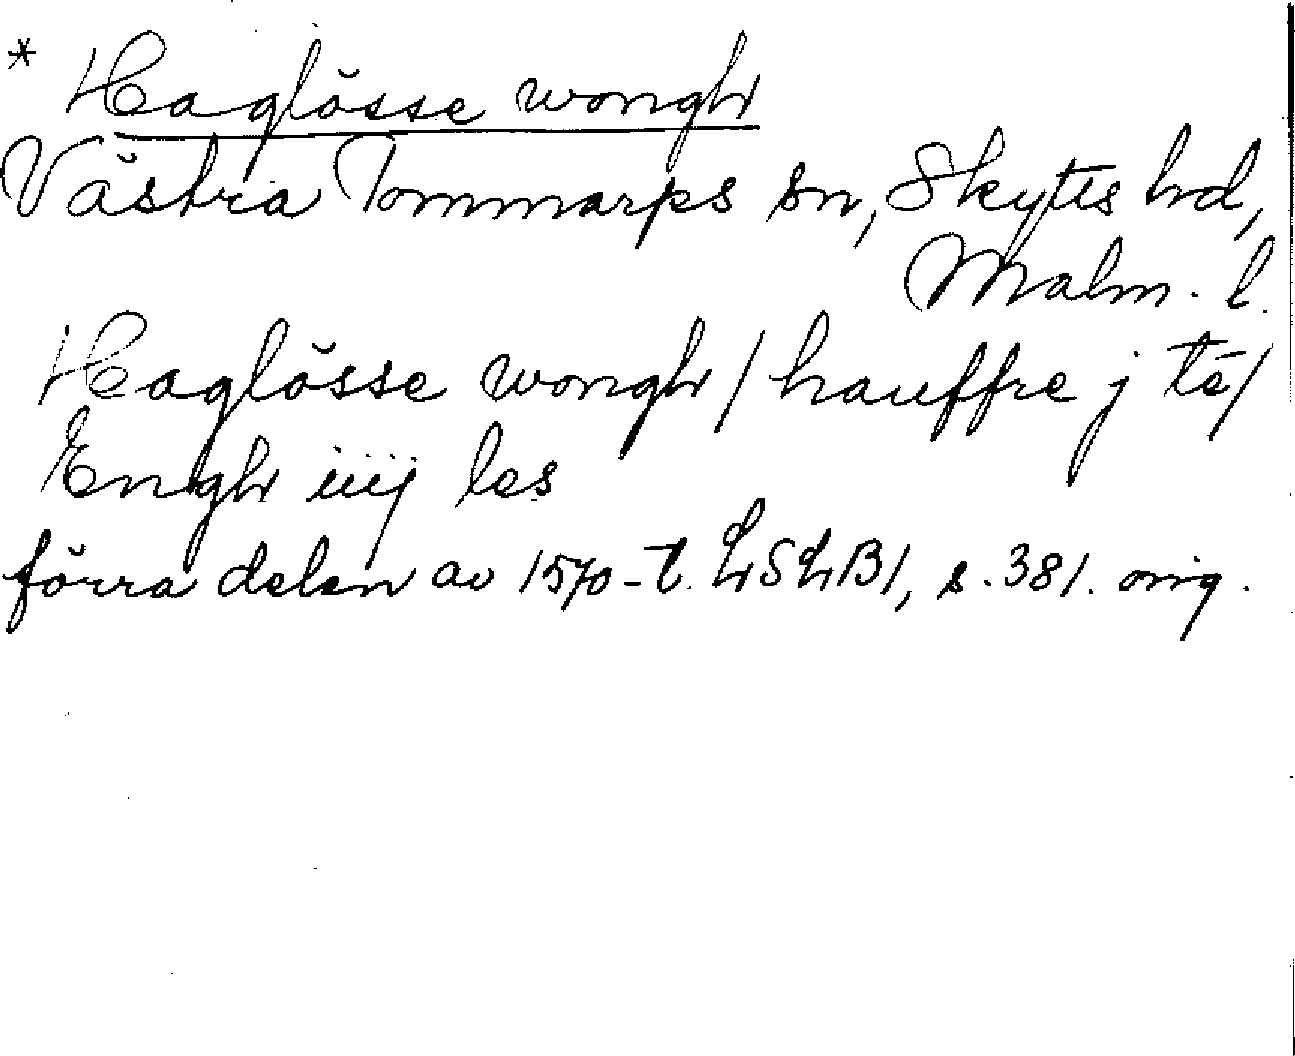 * Haglösse wongh
Västra Tommarps sn, Skytts hd,
Malm. l.
Haglösse wongh / hauffre j tē /
Engh iiij les
förra delen av 1570-t. LSLB1, s. 381. orig.